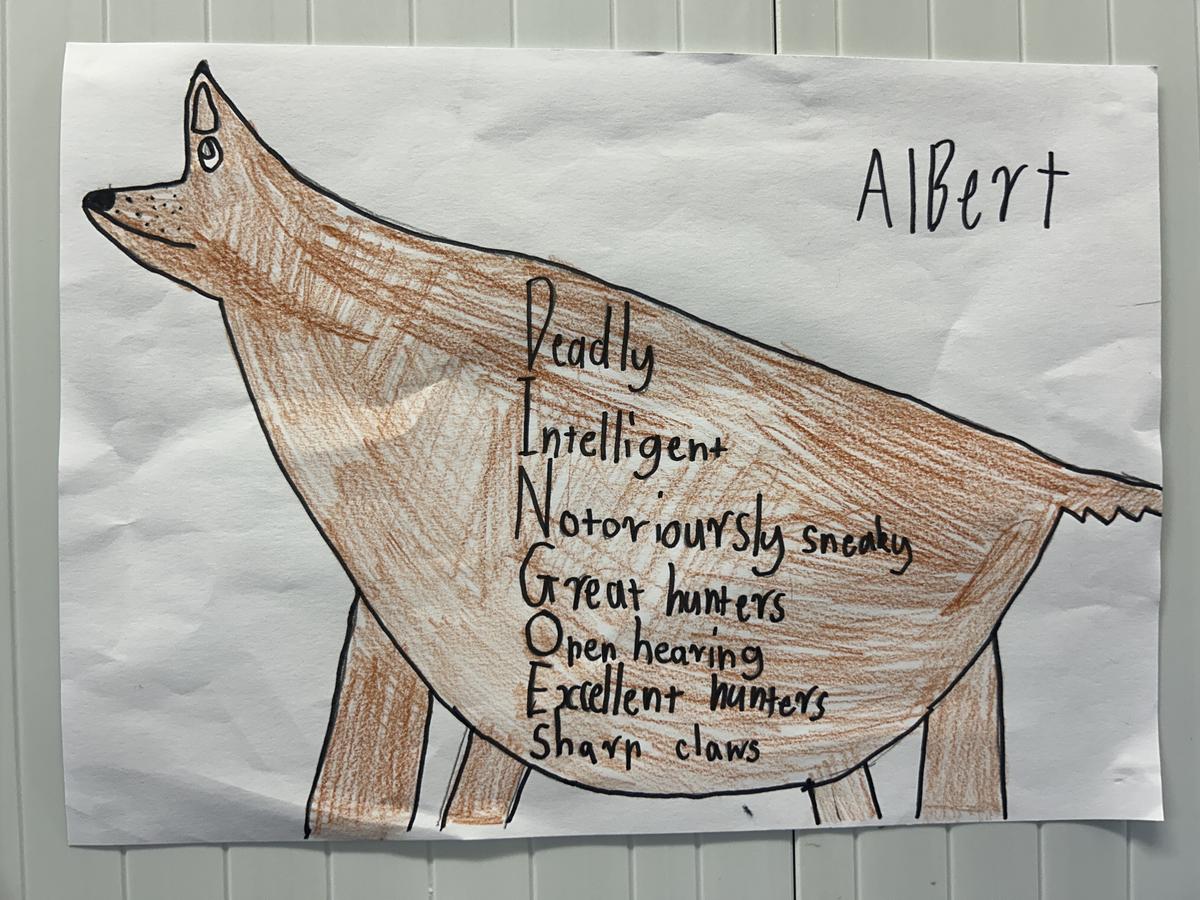 AlBert
Deadly
Intelligent
Notorioursly sneaky
Great hunters
Open hearing
Excellent hunters
Sharp claws